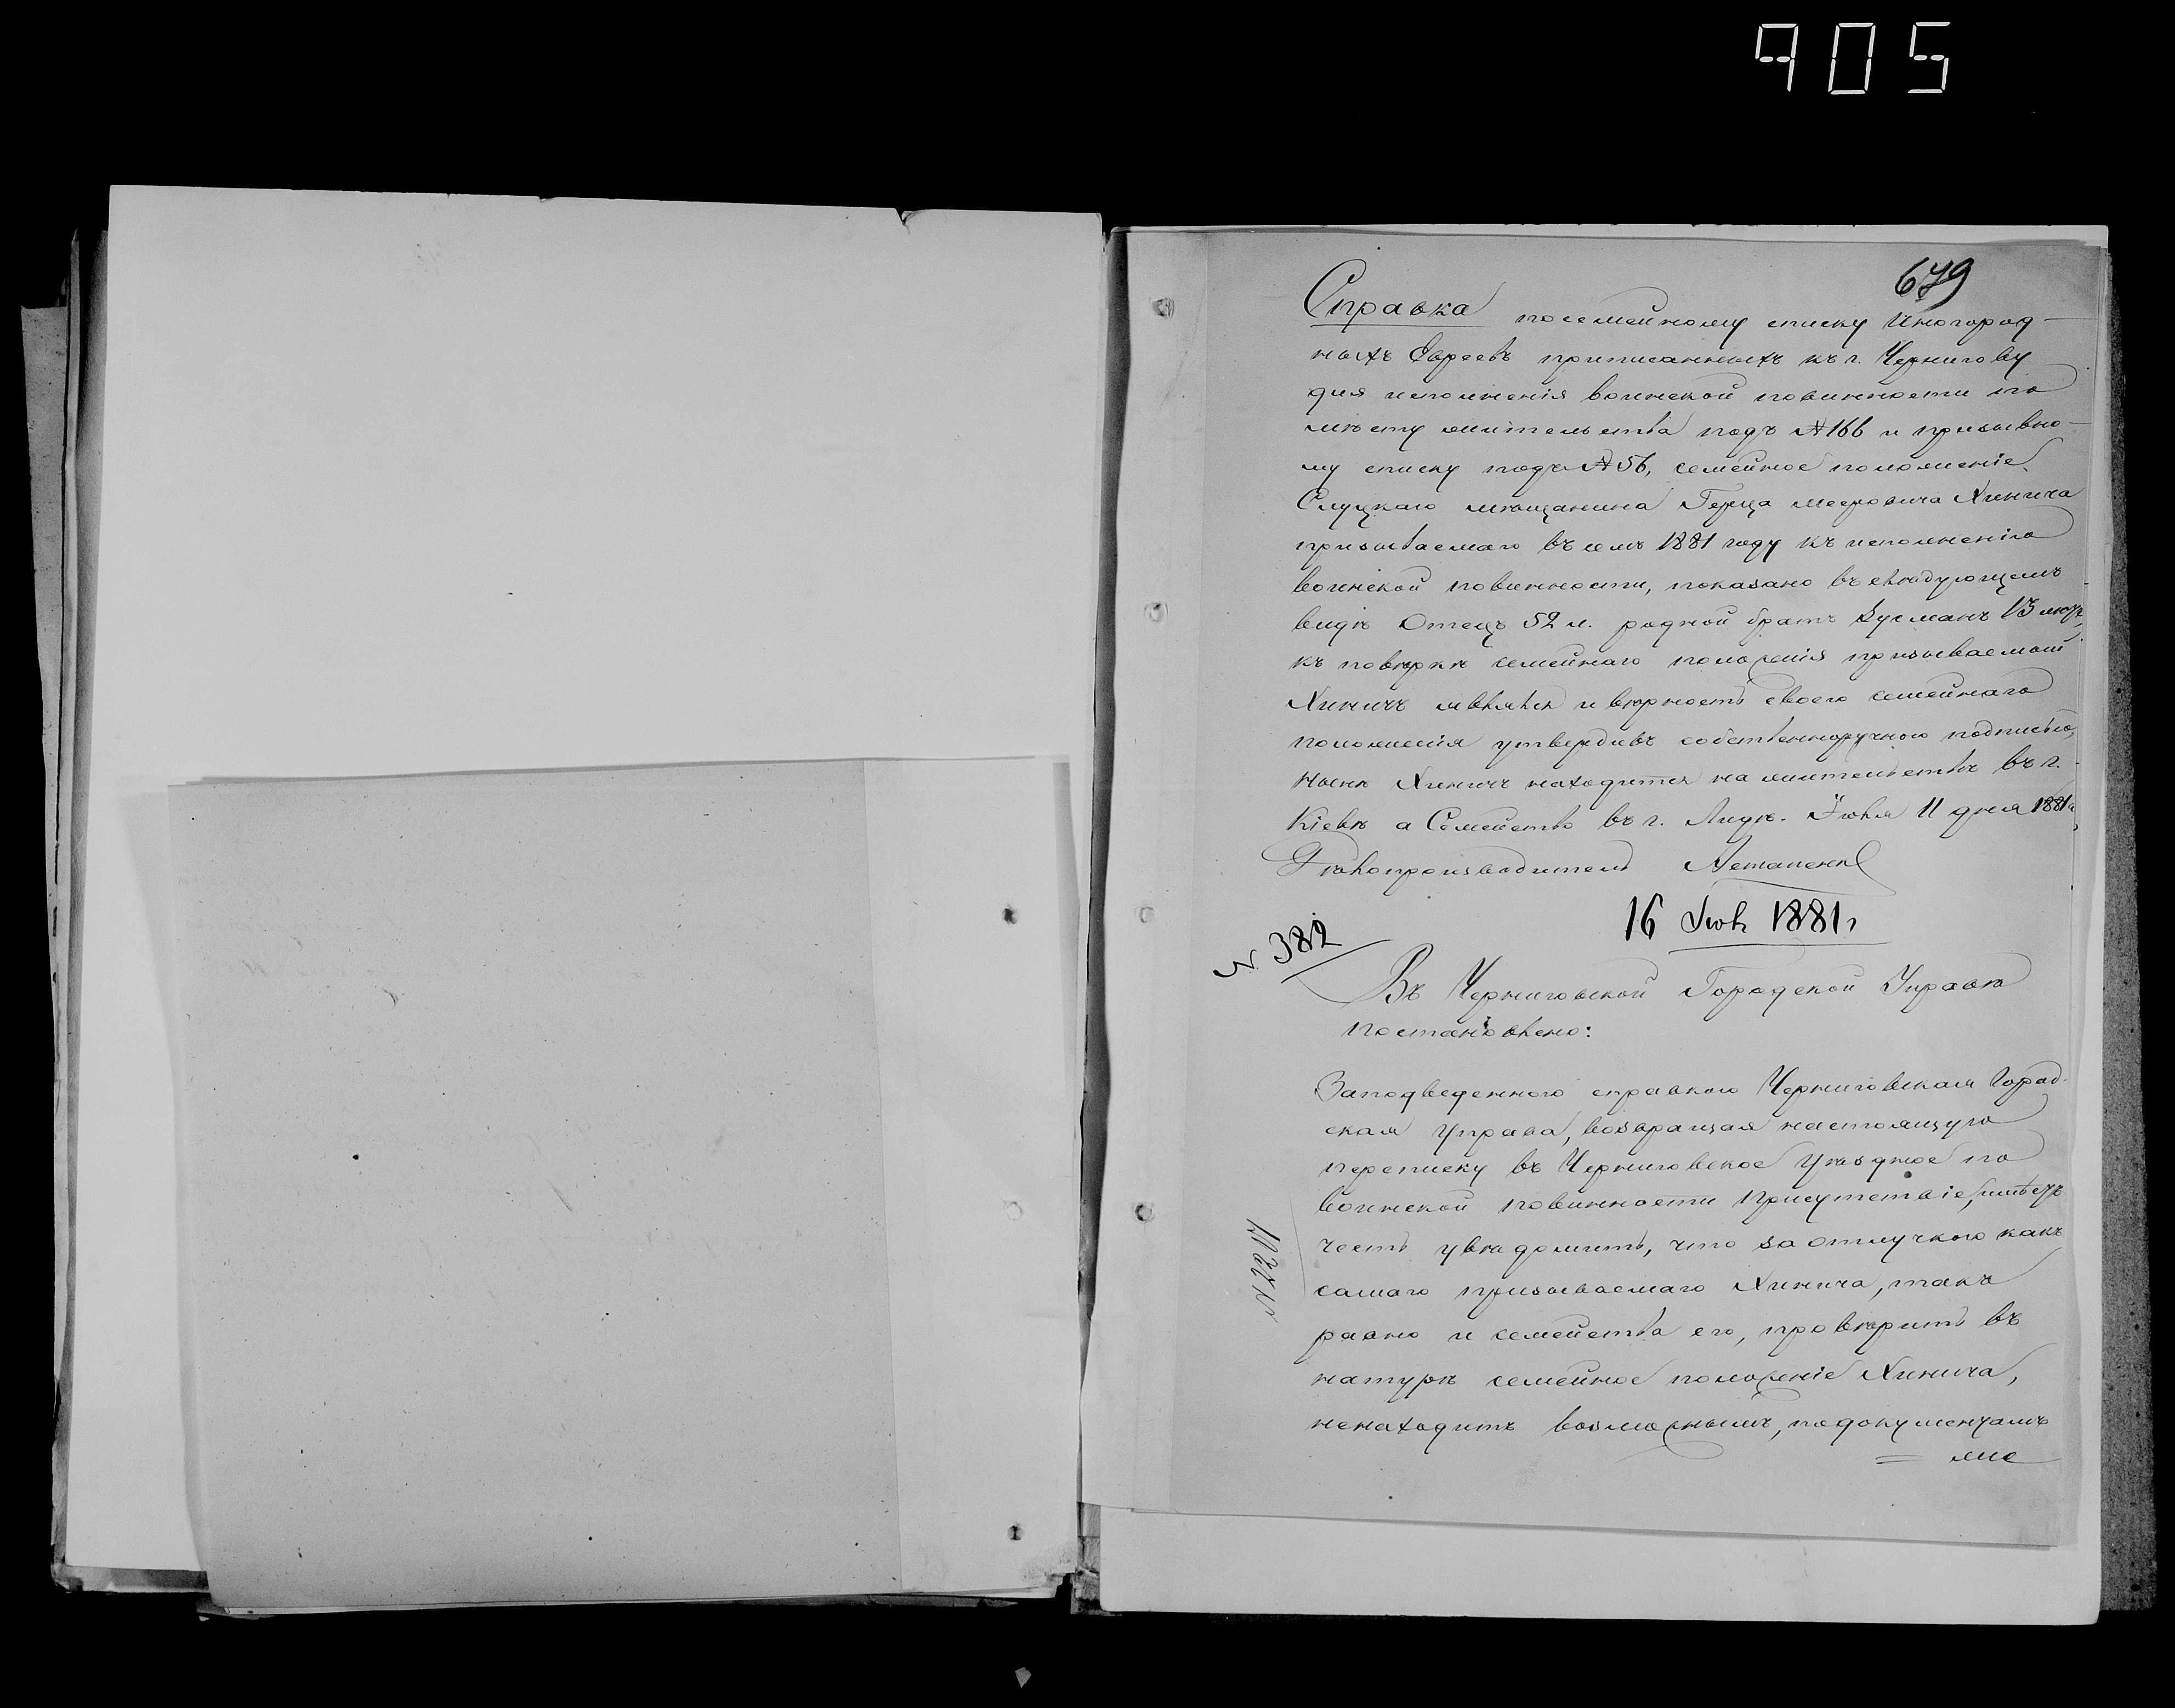 905
679
Справка посемейному списку Иногород-
ныхъ Евреевъ приписанныхъ къ г. Чернигову
для исполненія воинской повинности по
мѣсту жительства подъ № 166 и призывно-
му списку подъ № 56, семейное положеніе
Слуцкаго мѣщанина Герца Мееровича Хинича
призываемаго въ семъ 1881 году къ исполненію
воинской повинности, показано въ слѣдующемъ
видѣ Отецъ 52 л. родной братъ Зусманъ 13 лѣтъ,
къ повѣркѣ семейнаго положенія призываемый
Хиничъ явился и вѣрность своего семейнаго
положенія утвердивъ собственноручною подписью,
нынѣ Хиничъ находится на жительствѣ въ г.
Кіевѣ а Семейство въ г. Лидѣ. Іюля 11 дня 1881 г.
Дѣлопроизводитель
16 Іюл 1881 г
№ 382
Въ Черниговской Городской Управѣ
постановлено:
Заподведенною справкою Черниговская Город-
ская Управа, возвращая настоящую
переписку въ Черниговское Уѣздное по
воинской повинности Присутствіе, имѣетъ
честь увѣдомить, что за отлучкою какъ
самаго призываемаго Хинича, такъ
равно и семейства его, провѣрить въ
натурѣ семейное положеніе Хинича,
ненаходитъ возможнымъ, подокументамъ
= же